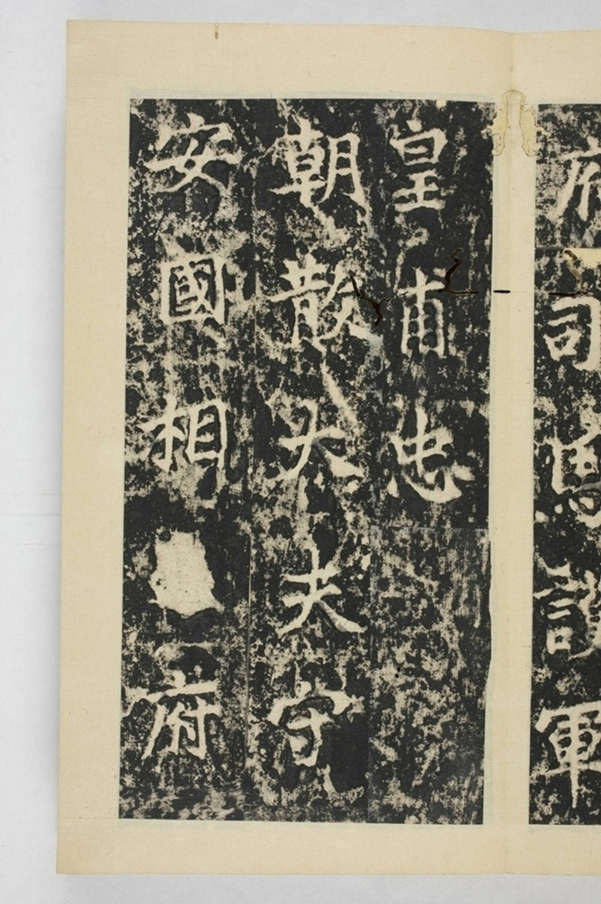 府司馬護軍
皇甫忠
朝散大夫守
安國相府